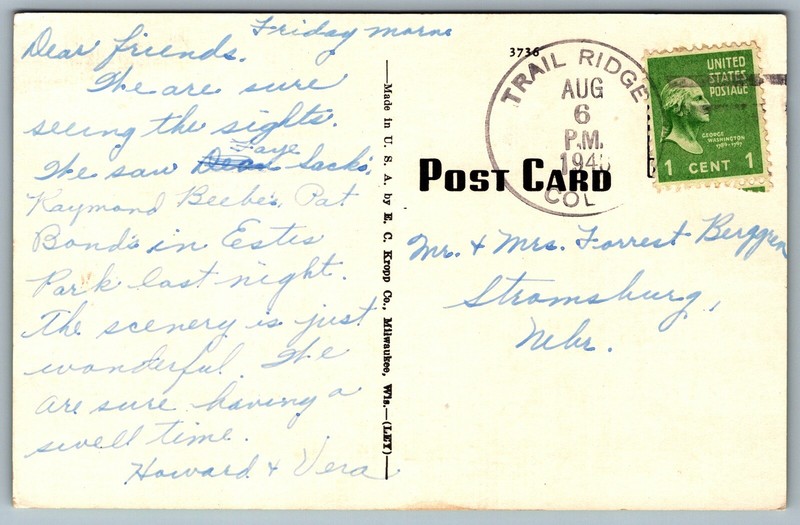 Friday morn
Dear friends.
We are sure
seeing the sights.
Faye
We saw Dean Sack's,
Raymond Beebe's, Pat
Bond's in Estes
Park last night.
The scenery is just
wonderful. We
are sure having a
swell time.
Howard & Vera
Made in U. S. A. by E. C. Kropp Co., Milwaukee, Wis.—(LEY)
3736
TRAIL RIDGE
AUG
6
P.M.
COL
UNITED
STATES
POSTAGE
GEORGE
WASHINGTON
1789-1797
1 CENT 1
POST CARD
Mr. & Mrs. Forrest Berggren
Stromsburg,
Nebr.